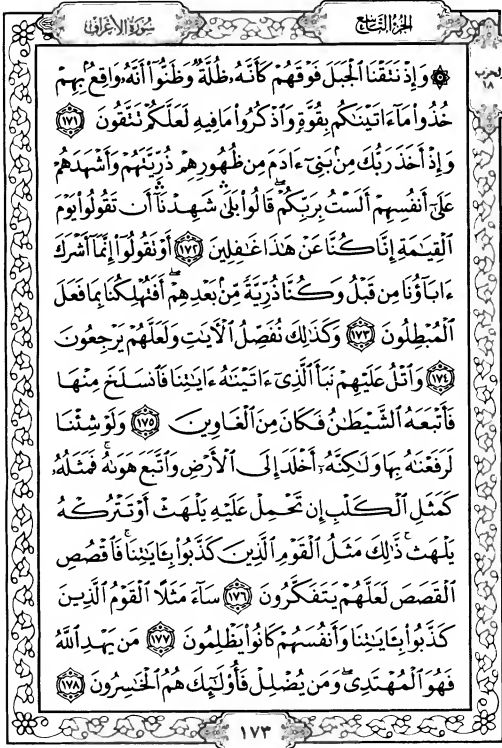 سُورَةُ الأَعْرَافِ
الجُزْءُ التَّاسِعُ
الحزب
١٨
۞ وَإِذ نَّتَقْنَا ٱلْجَبَلَ فَوْقَهُمْ كَأَنَّهُۥ ظُلَّةٌ وَظَنُّوٓا۟ أَنَّهُۥ وَاقِعٌۢ بِهِمْ
خُذُوا۟ مَآ ءَاتَيْنَٰكُم بِقُوَّةٍ وَٱذْكُرُوا۟ مَا فِيهِ لَعَلَّكُمْ تَتَّقُونَ ١٧١
وَإِذْ أَخَذَ رَبُّكَ مِنۢ بَنِىٓ ءَادَمَ مِن ظُهُورِهِمْ ذُرِّيَّتَهُمْ وَأَشْهَدَهُمْ
عَلَىٰٓ أَنفُسِهِمْ أَلَسْتُ بِرَبِّكُمْ ۖ قَالُوا۟ بَلَىٰ ۛ شَهِدْنَآ ۛ أَن تَقُولُوا۟ يَوْمَ
ٱلْقِيَٰمَةِ إِنَّا كُنَّا عَنْ هَٰذَا غَٰفِلِينَ ١٧٢ أَوْ تَقُولُوٓا۟ إِنَّمَآ أَشْرَكَ
ءَابَآؤُنَا مِن قَبْلُ وَكُنَّا ذُرِّيَّةً مِّنۢ بَعْدِهِمْ ۖ أَفَتُهْلِكُنَا بِمَا فَعَلَ
ٱلْمُبْطِلُونَ ١٧٣ وَكَذَٰلِكَ نُفَصِّلُ ٱلْءَايَٰتِ وَلَعَلَّهُمْ يَرْجِعُونَ
١٧٤ وَٱتْلُ عَلَيْهِمْ نَبَأَ ٱلَّذِىٓ ءَاتَيْنَٰهُ ءَايَٰتِنَا فَٱنسَلَخَ مِنْهَا
فَأَتْبَعَهُ ٱلشَّيْطَٰنُ فَكَانَ مِنَ ٱلْغَاوِينَ ١٧٥ وَلَوْ شِئْنَا
لَرَفَعْنَٰهُ بِهَا وَلَٰكِنَّهُۥٓ أَخْلَدَ إِلَى ٱلْأَرْضِ وَٱتَّبَعَ هَوَىٰهُ ۚ فَمَثَلُهُۥ
كَمَثَلِ ٱلْكَلْبِ إِن تَحْمِلْ عَلَيْهِ يَلْهَثْ أَوْ تَتْرُكْهُ
يَلْهَث ۚ ذَّٰلِكَ مَثَلُ ٱلْقَوْمِ ٱلَّذِينَ كَذَّبُوا۟ بِـَٔايَٰتِنَا ۚ فَٱقْصُصِ
ٱلْقَصَصَ لَعَلَّهُمْ يَتَفَكَّرُونَ ١٧٦ سَآءَ مَثَلًا ٱلْقَوْمُ ٱلَّذِينَ
كَذَّبُوا۟ بِـَٔايَٰتِنَا وَأَنفُسَهُمْ كَانُوا۟ يَظْلِمُونَ ١٧٧ مَن يَهْدِ ٱللَّهُ
فَهُوَ ٱلْمُهْتَدِى ۖ وَمَن يُضْلِلْ فَأُو۟لَٰٓئِكَ هُمُ ٱلْخَٰسِرُونَ ١٧٨
١٧٣